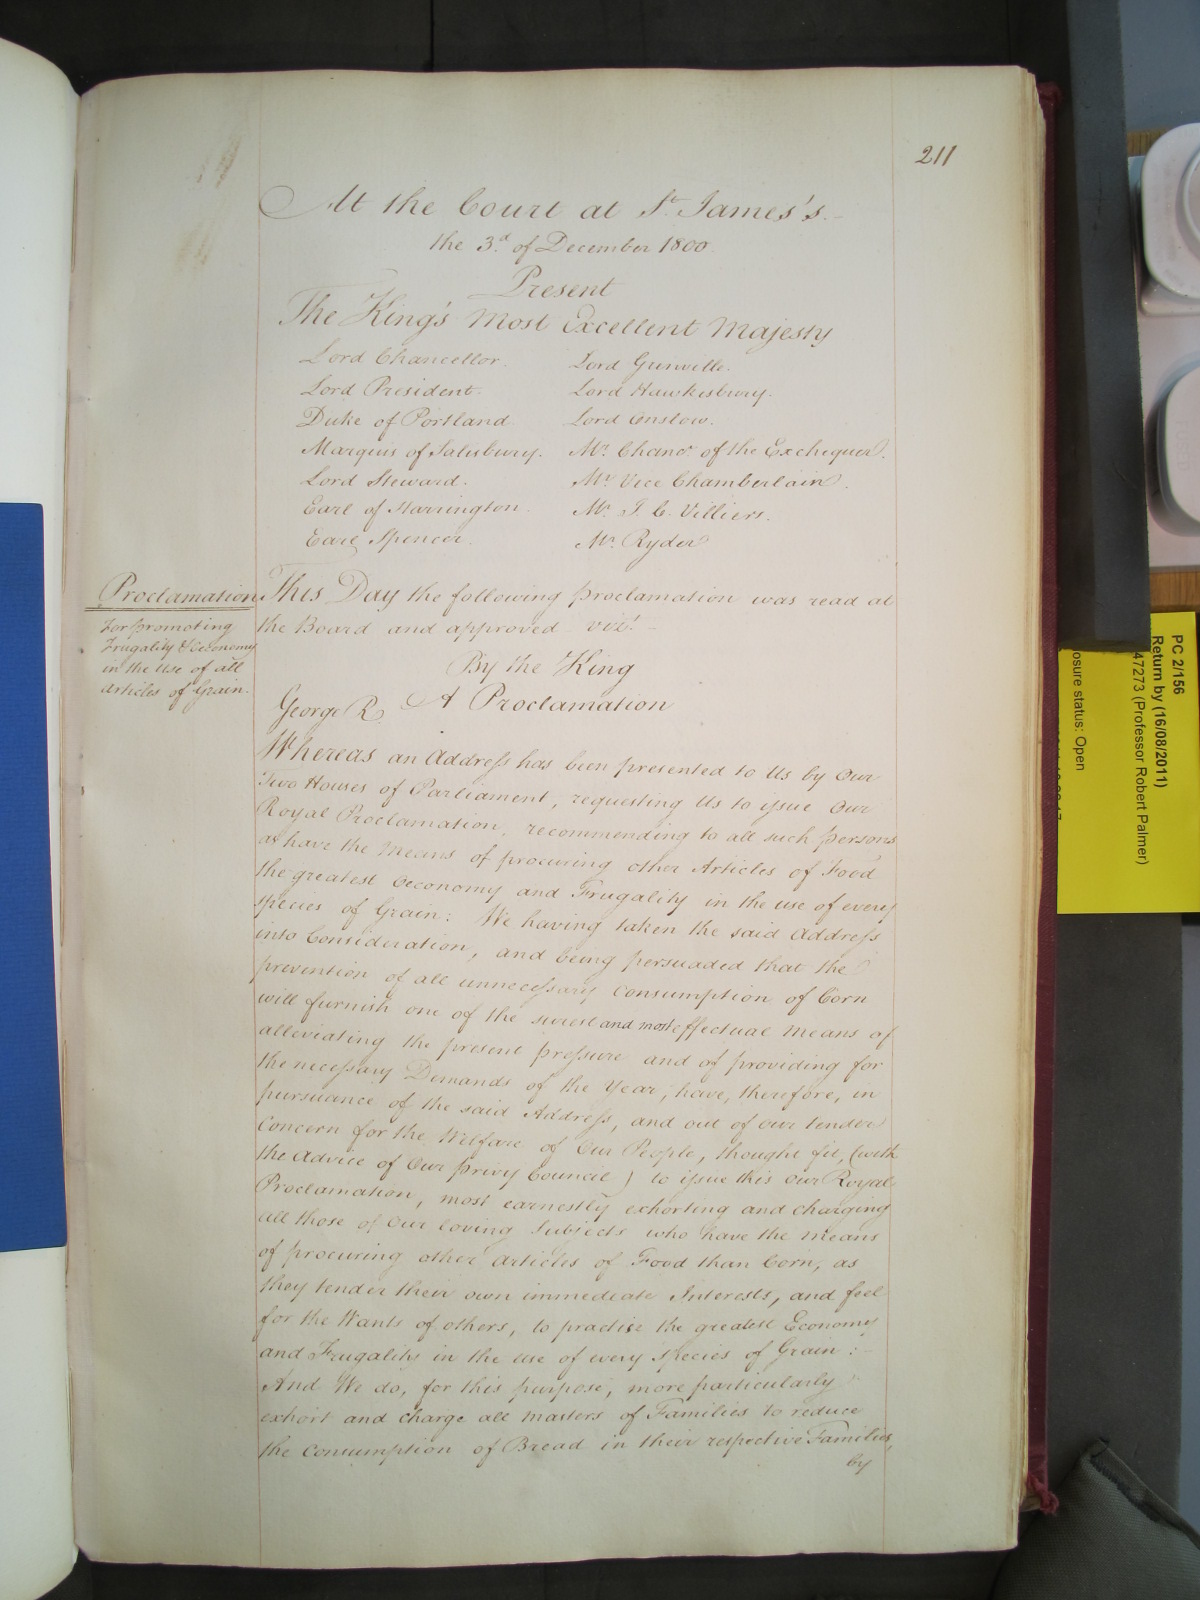 211
At the Court at St. James's.
the 3d. of December 1800
Present
The King's Most Excellent Majesty
Lord Chancellor. Lord Grenville.
Lord President. Lord Hawkesbury.
Duke of Portland Lord Onslow.
Marquis of Salisbury. Mr. Chanr. of the Exchequer.
Lord Steward. Mr. Vice Chamberlain.
Earl of Harrington. Mr. J. C. Villiers.
Earl Spencer. Mr. Ryder
Proclamation
For promoting
Frugality & Oeconomy
in the Use of all
Articles of Grain.
This Day the following Proclamation was read at
the Board and approved vizt.
By the King
George R A Proclamation
Whereas an Address has been presented to Us by Our
Two Houses of Parliament, requesting Us to issue Our
Royal Proclamation, recommending to all such persons
as have the Means of procuring other Articles of Food
the greatest Oeconomy and Frugality in the use of every
species of Grain: We having taken the said Address
into Consideration, and being persuaded that the
prevention of all unnecessary Consumption of Corn
will furnish one of the surest and most effectual Means of
alleviating the present pressure and of providing for
the necessary Demands of the Year, have, therefore, in
pursuance of the said Address, and out of our tender
Concern for the Welfare of Our People, thought fit, (with
the Advice of Our Privy Council) to issue this our Royal
Proclamation, most earnestly exhorting and charging
all those of Our loving Subjects who have the Means
of procuring other articles of Food than Corn, as
they tender their own immediate Interests, and feel
for the Wants of others, to practise the greatest Economy
and Frugality in the use of every Species of Grain:
And We do, for this purpose, more particularly
exhort and charge all Masters of Families to reduce
the Consumption of Bread in their respective Families,
by
PC 2/156
Return by (16/08/2011)
47273 (Professor Robert Palmer)
osure status: Open